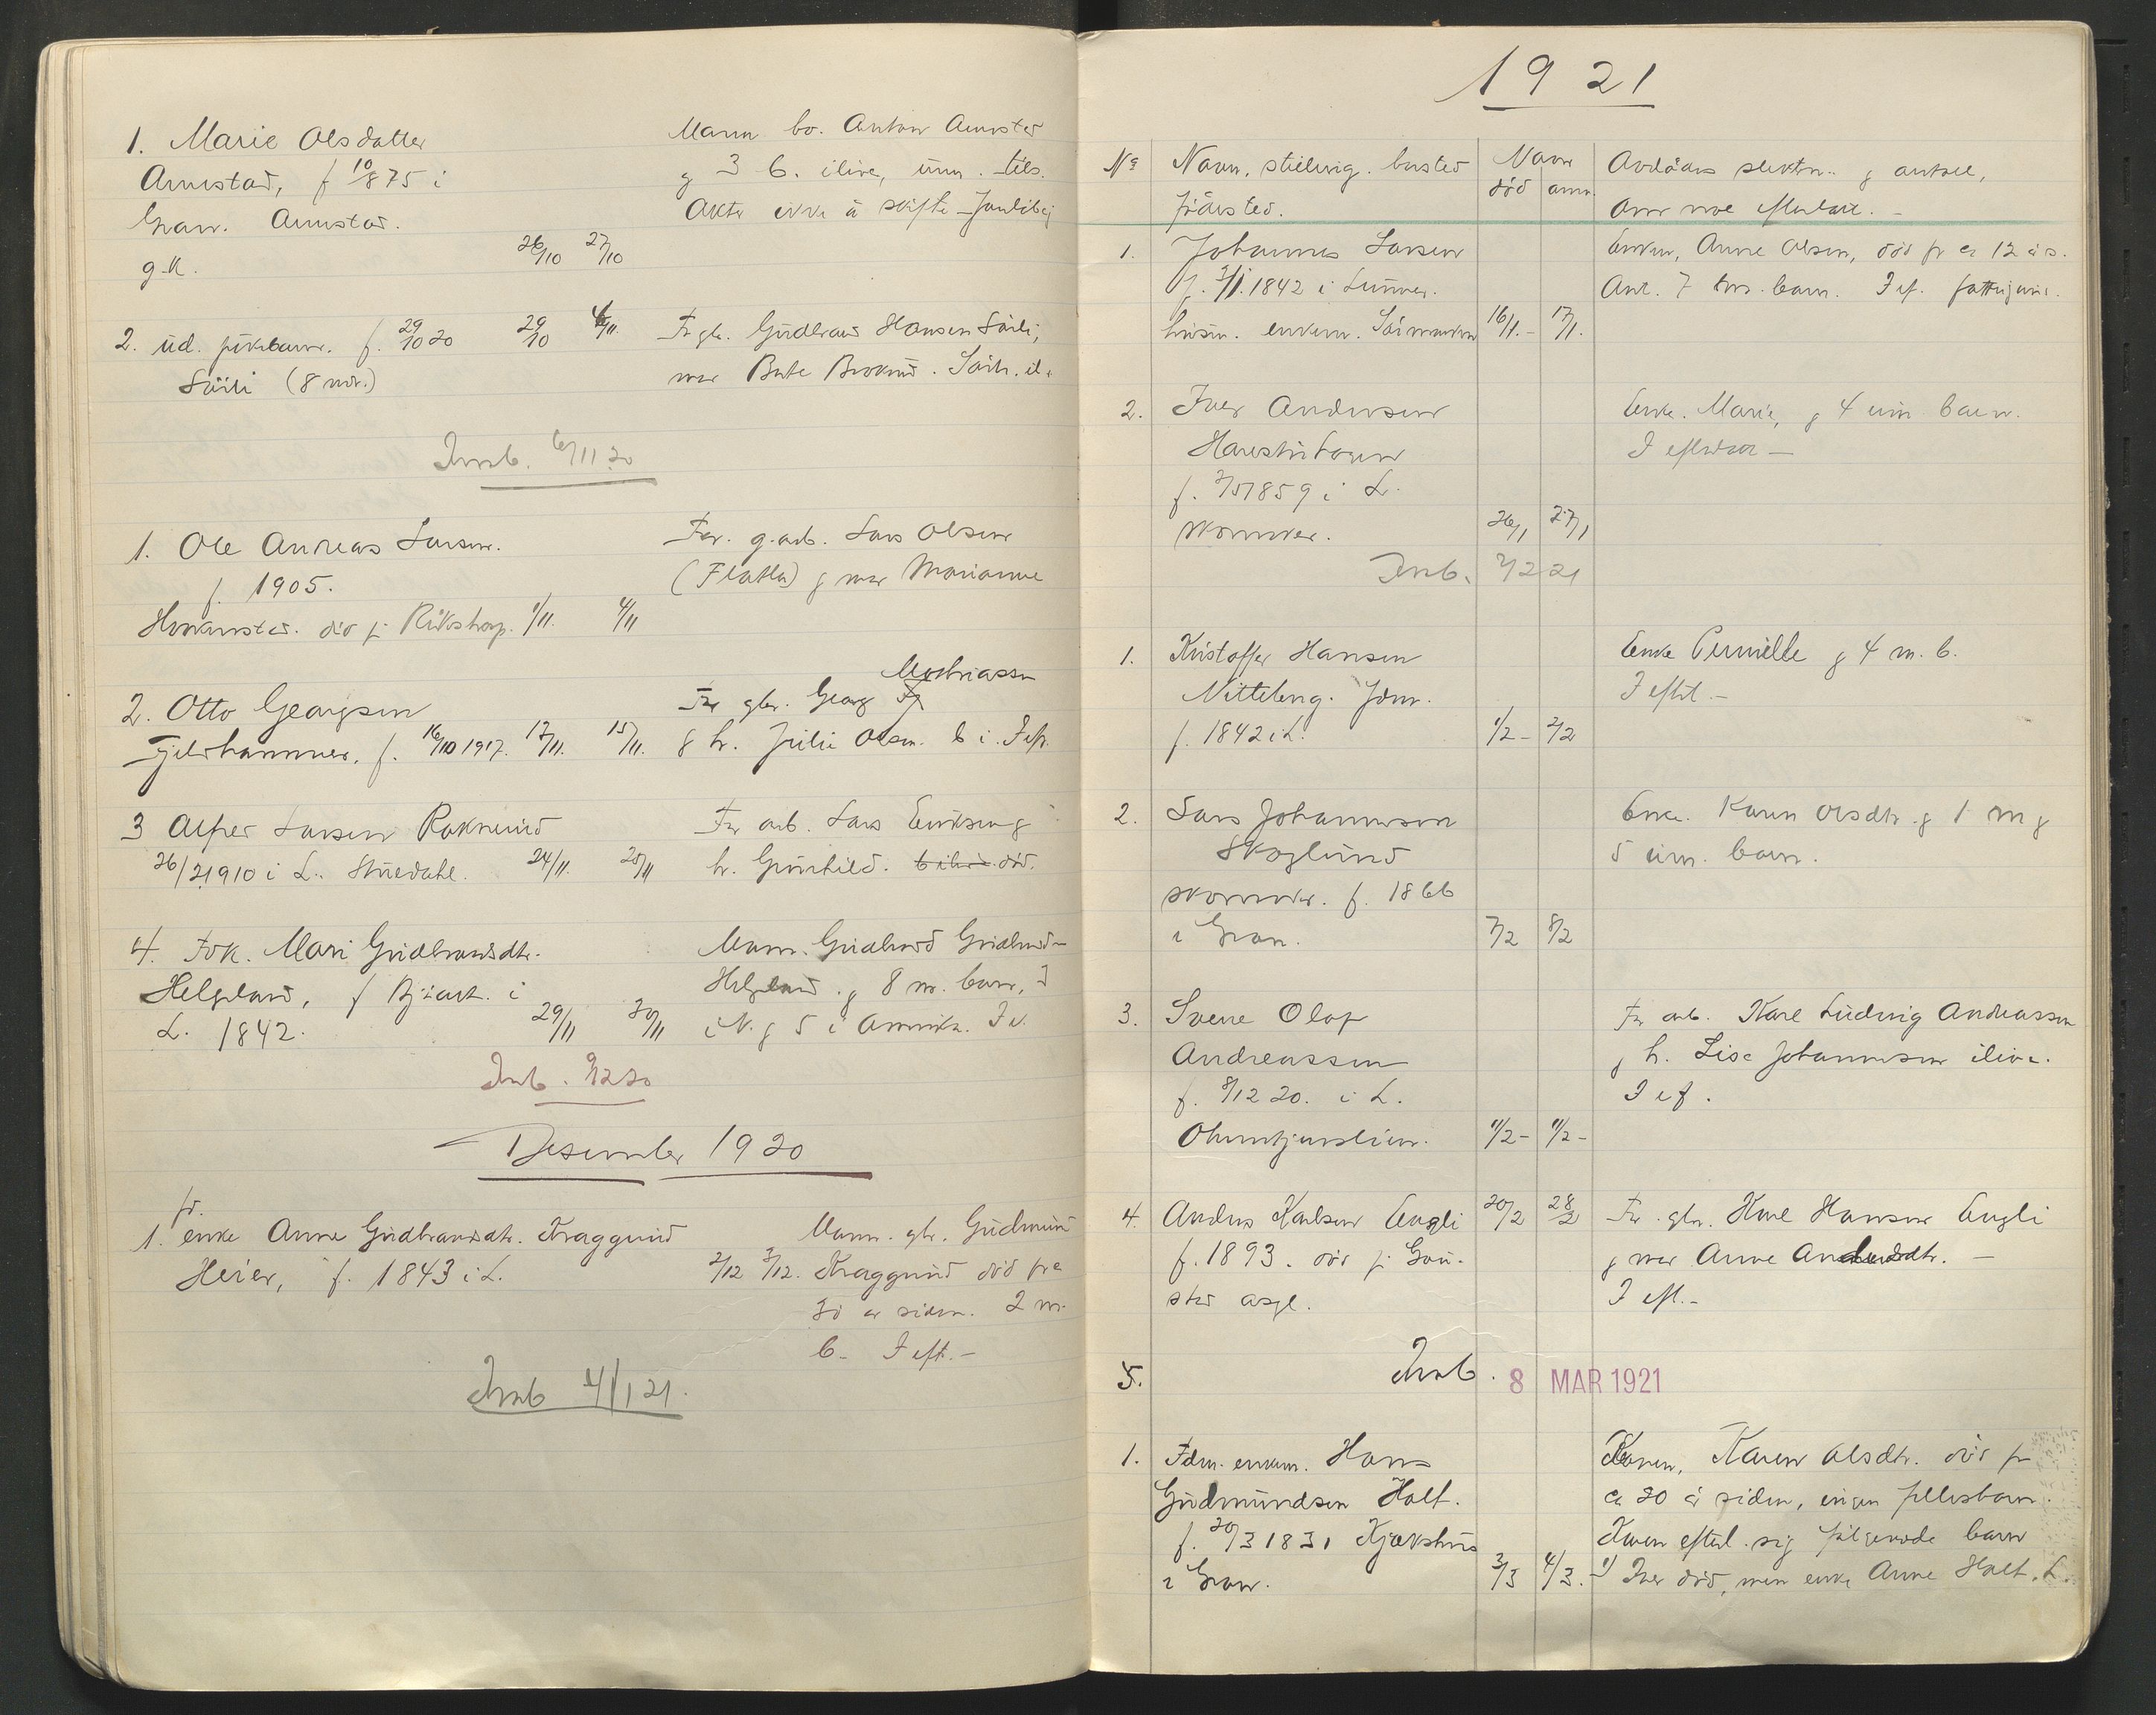 1. Marie Olsdatter
Amestad, f 10/8 75 i
Gran. Amestad.
g.k. 26/10 27/10
Mann bo. Anton Amestad
g 3 b. ilive, um. tils.
Akter ikke å skifte
2. ud. pikebarn. f. 29/10 20 29/10 6/11.
Søili (8 )
Far gbr. Gudbrand Hansen Søili,
mor Berte . Søili. il.
Innb. 6/11 20
1. Ole Andreas Larsen.
f. 1905.
død på Rikshosp. 1/11. 4/11
Far. g.arb. Lars Olsen
(Flatla) g mor Marianne
2. Otto Georgsen
Fjeldhammer. f. 16/10 1917. 12/11. 15/11.
Far gbr. Georg Mathiassen
g h. Julie Olsen. b i. I ef.
3 Alfred Larsen Roknerud
26/2 1910 i L. Stuedahl. 24/11. 25/11
Far arb. Lars Eriksen g
h. Gunhild. død.
4. Fok. Mari Gudbrandsdtr.
Helgeland, f i
L. 1842. 29/11 30/11
Mann. Gudbrand Gudbrands-
Helgeland. g 8 m. barn, 3
i N. g 5 i Amerika. I e.
Innb. 3/12 20
Desember 1920
fr.
1. enke Anne Gudbrandsdtr. Kraggerud
Heier, f. 1843 i L. 2/12 3/12.
Mann. gbr. Gudmund
Kraggerud død for
30 år siden. 2 m.
b. I eft. -
Innb 4/1 21.
1921
No Navn, stilling. bosted Naar Avdødes slektn. g antall,
fødested. død anm. Om noe efterlatt. -
1. Johannes Larsen
f. 7/1. 1842 i Lunner.
husm. enkem. 16/1. - 17/1.
Enken, Anne Olsen, død for ca 12 års.
Ant. 7 barn. I ef. fattigunn.
2. Iver Andersen
Harestuhagen
f. 2/5 1859 i L.
skomaker. 26/1 27/1
Enke. Marie, g 4 um barn.
I efterlatt -
Innb. 2/2 21
1. Kristoffer Hansen
Nitteberg. fdm.
f. 1842 i L. 1/2 - 2/2
Enke Pernille g 4 m. b.
I eftl. -
2. Lars Johannesen
Skoglund
skomaker. f. 1866
i Gran. 7/2 8/2
Enke. Karen Olsdtr. g 1 m g
5 um. barn.
3. Sverre Olaf
Andreassen
f. 8/12 20. i L.
11/2 - 11/2 -
Far arb. Karl Ludvig Andreassen
g h. Lise Johannesen ilive.
I ef.
4. Anders Karlsen Engli 20/2 28/2
f. 1893. død på Gau-
stad asyl.
Far. gbr. Karl Hansen Engli
g mor Anne Andersdtr. -
I eft. -
5. Innb. 8 MAR 1921
1. Fdm. enkem. Hans
Gudmundsen Holt.
f. 20/3 1831 Kjækshus
i Gran. 3/3 4/3.
Konen, Karen Olsdtr. død for
ca 20 år siden, ingen fellesbarn.
Konen efterl. sig følgende barn
1) Iver død, men enke Anne Holt. L.